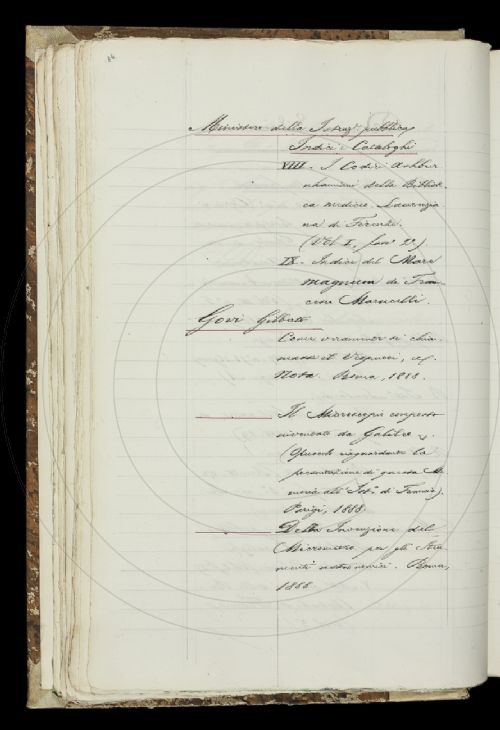 84
Ministero della Istruz.e pubblica
Indici e Cataloghi
VIII. I Codici Ashbur
nhamiani della Bibliote
ca mediceo. Laurenzia
na di Firenze.
(Vol. I, fasc 2º)
IX. Indice del Mare
magnum di Fran
cesco Marucelli.
Govi Gilberto
Come veramente si chia
masse il Vespucci,
Nota. Roma, 1888.
Il Microscopio composto
inventato da Galileo
(Opuscolo riguardante la
presentazione di questa Me
moria all' Ist.o di Francia).
Parigi, 1888.
Della Invenzione del
Micrometro per gli Stru
menti astronomici. Roma,
1888.